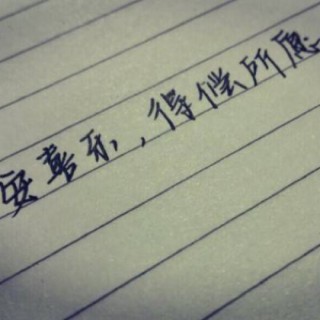 安喜乐，得偿所愿